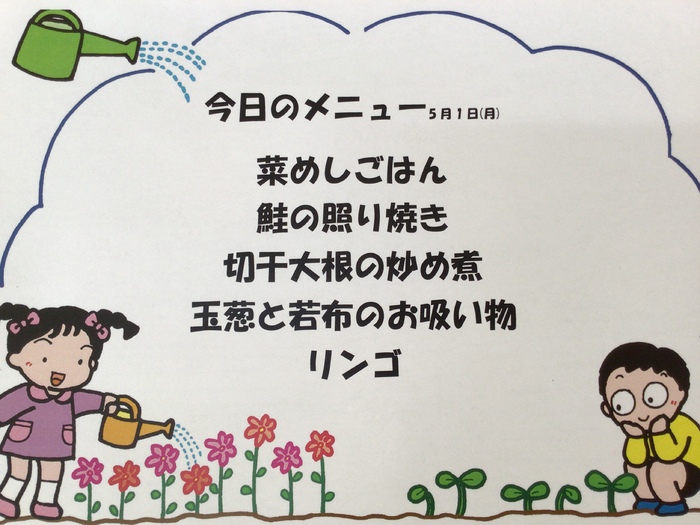 今日のメニュー 5月1日(月)
菜めしごはん
鮭の照り焼き
切干大根の炒め煮
玉葱と若布のお吸い物
リンゴ